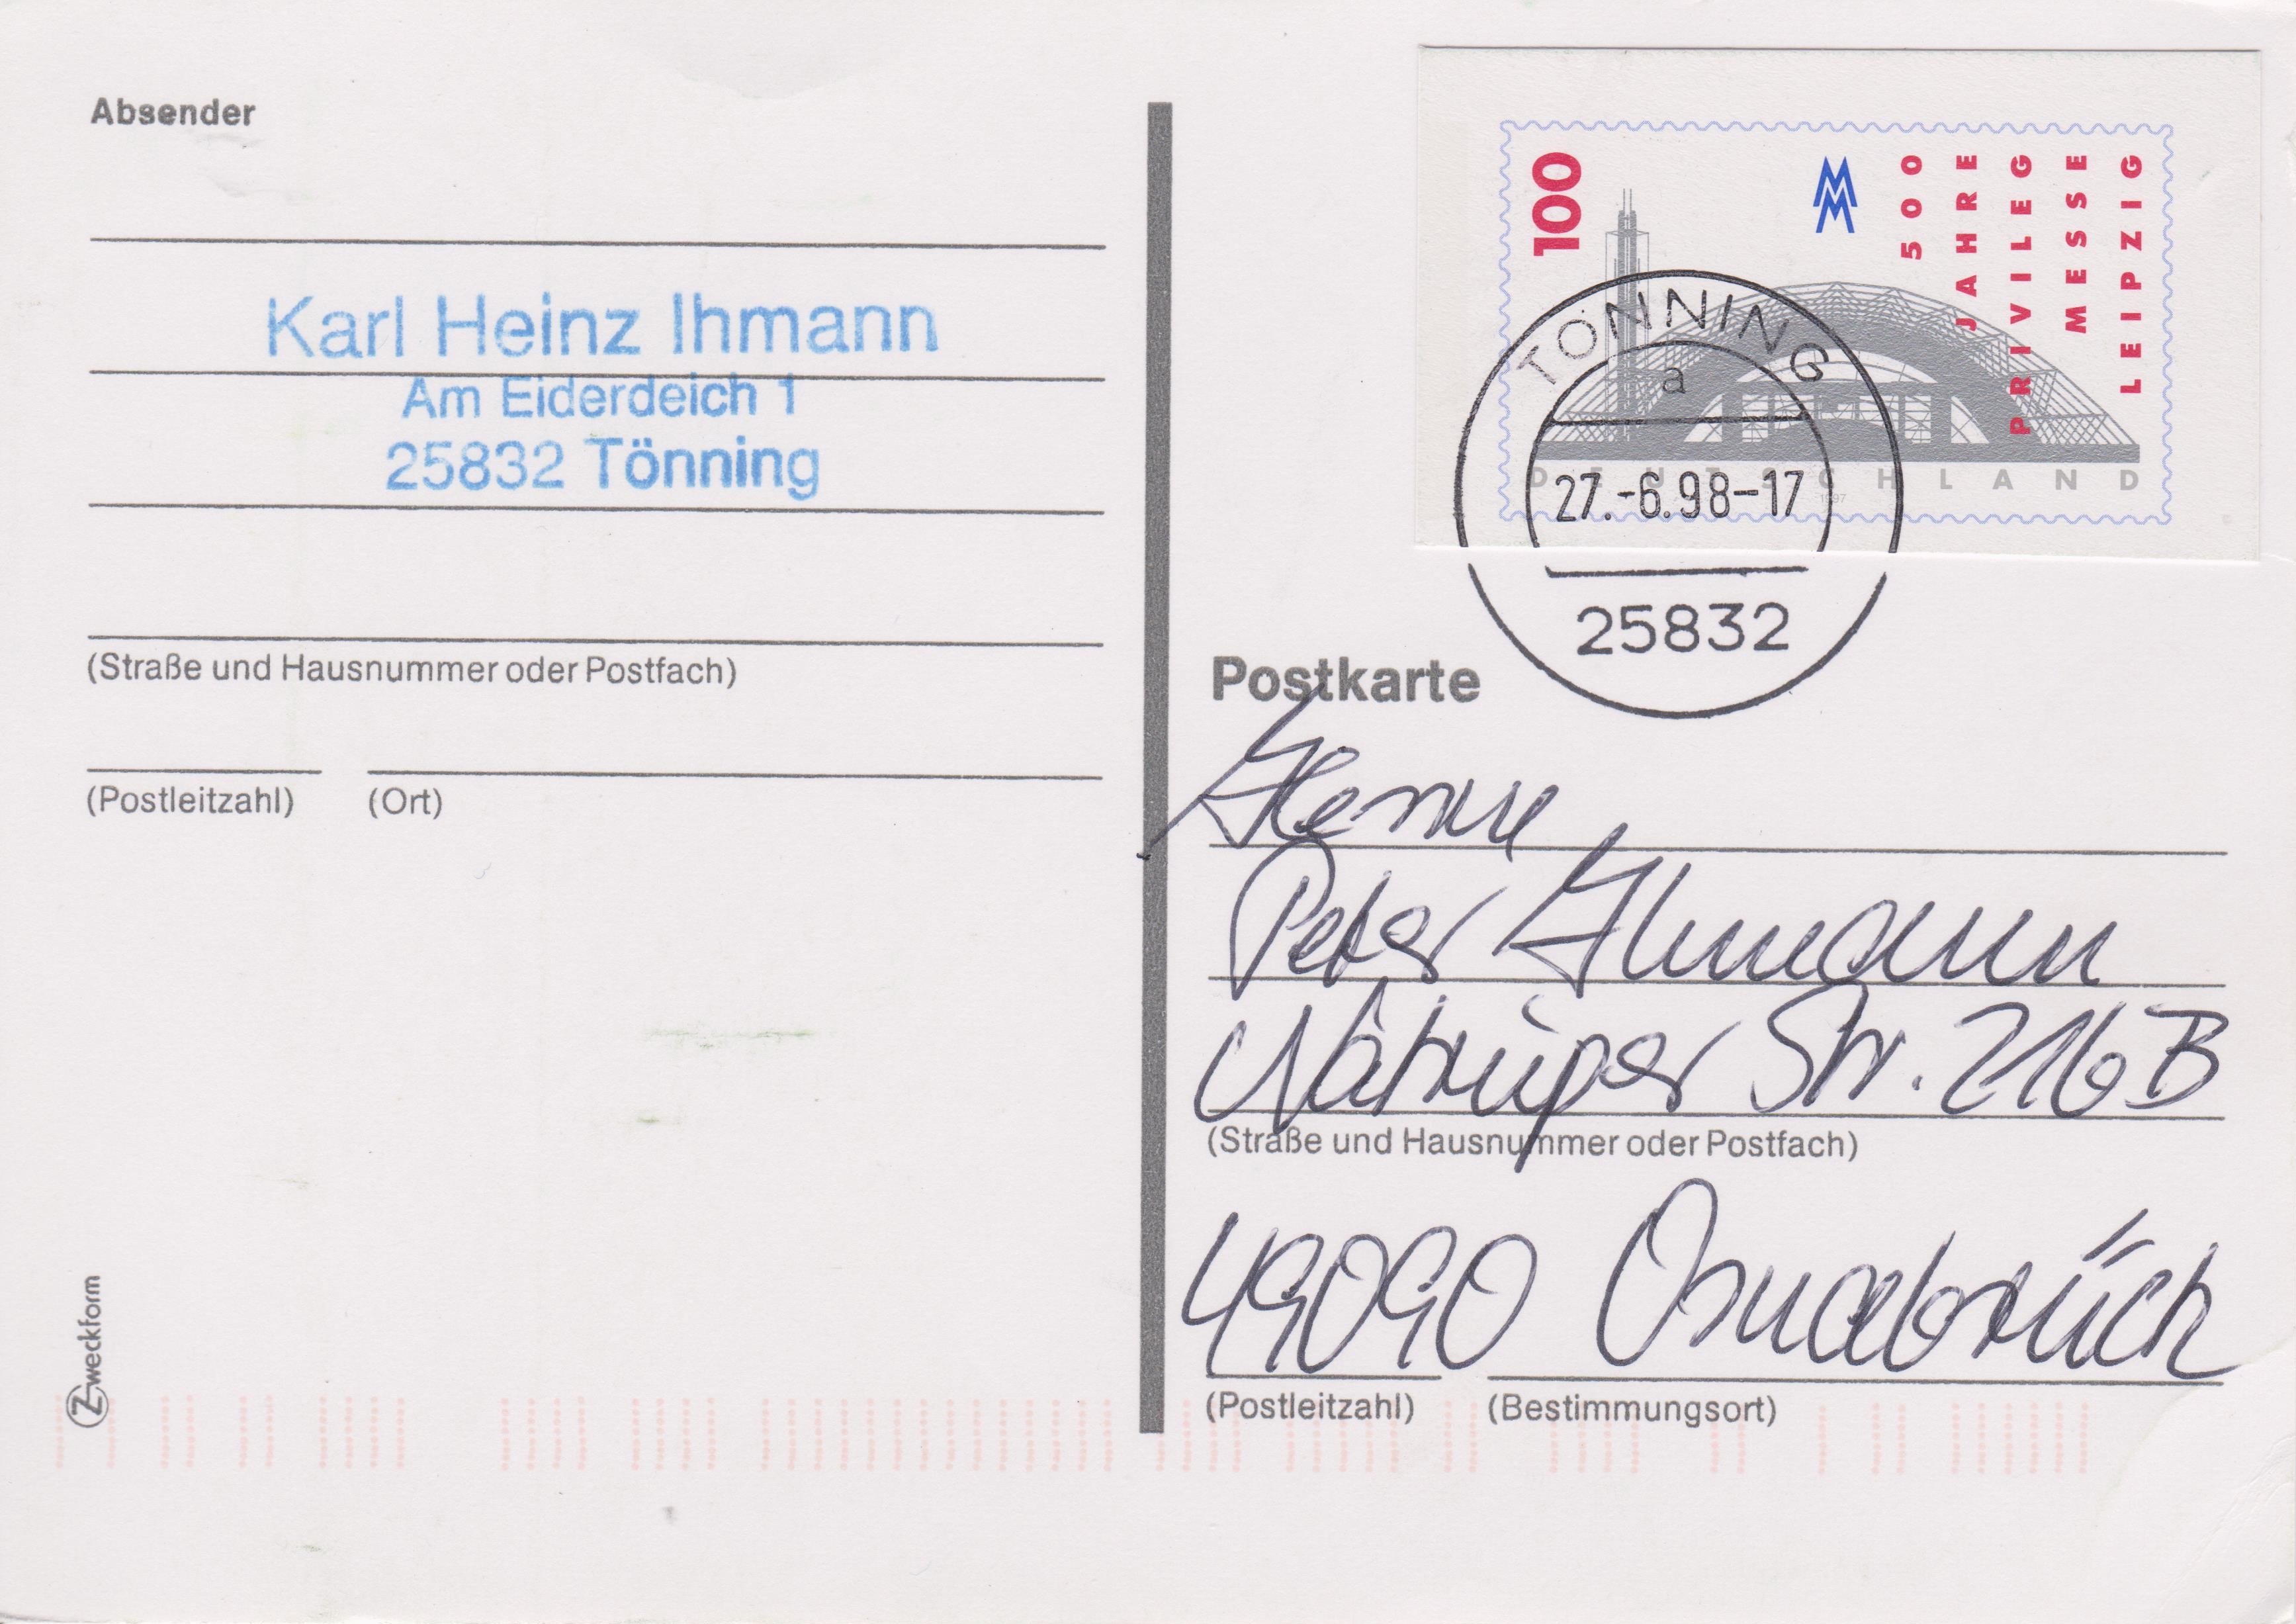 Absender
Karl Heinz Ihmann
Am Eiderdeich 1
25832 Tönning
(Straße und Hausnummer oder Postfach)
(Postleitzahl) (Ort)
Zweckform
100
500
JAHRE
PRIVILEG
MESSE
LEIPZIG
DEUTSCHLAND
1997
TÖNNING
a
27.-6.98-17
25832
Postkarte
Herrn
Peter Ihmann
Natruper Str. 216 B
(Straße und Hausnummer oder Postfach)
49090 Osnabrück
(Postleitzahl) (Bestimmungsort)